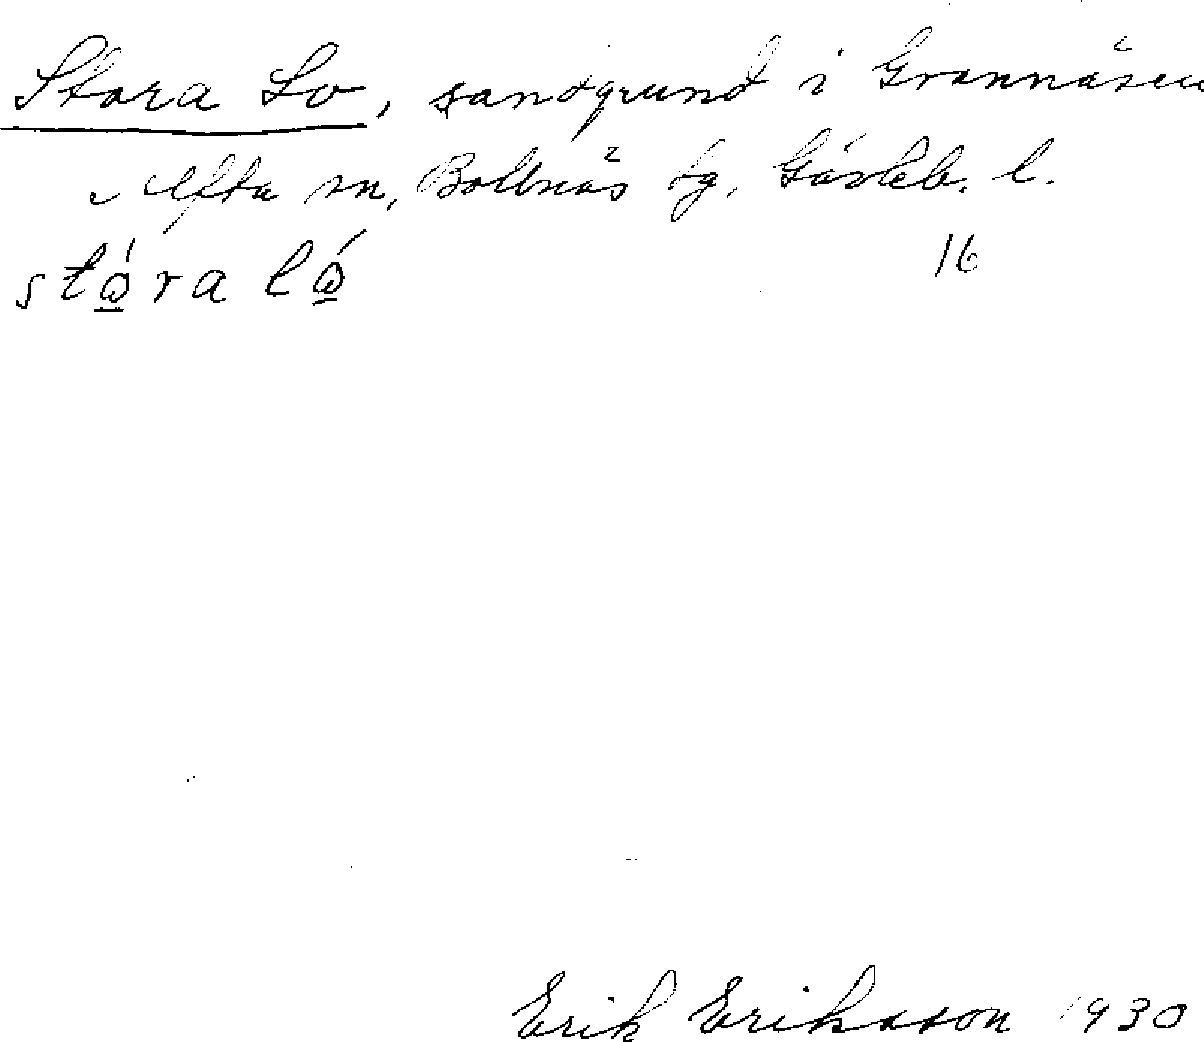 Stora Lo, sandgrund i Grannäsen
Alfta sn, Bollnäs tg, Gävleb. l.
stǫ́ra lǫ́
16
Erik Eriksson 1930